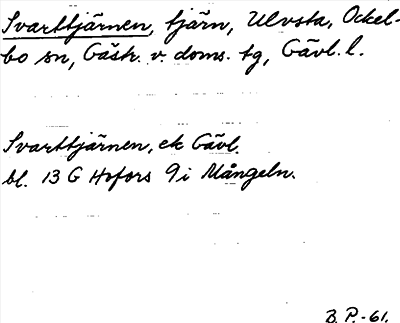 Svarttjärnen, tjärn, Ulvsta, Ockel-
bo sn, Gästr. v. doms. tg, Gävl. l.
Svarttjärnen, ek Gävl.
bl. 13 G Hofors 9 i Mångeln.
B. P. -61.